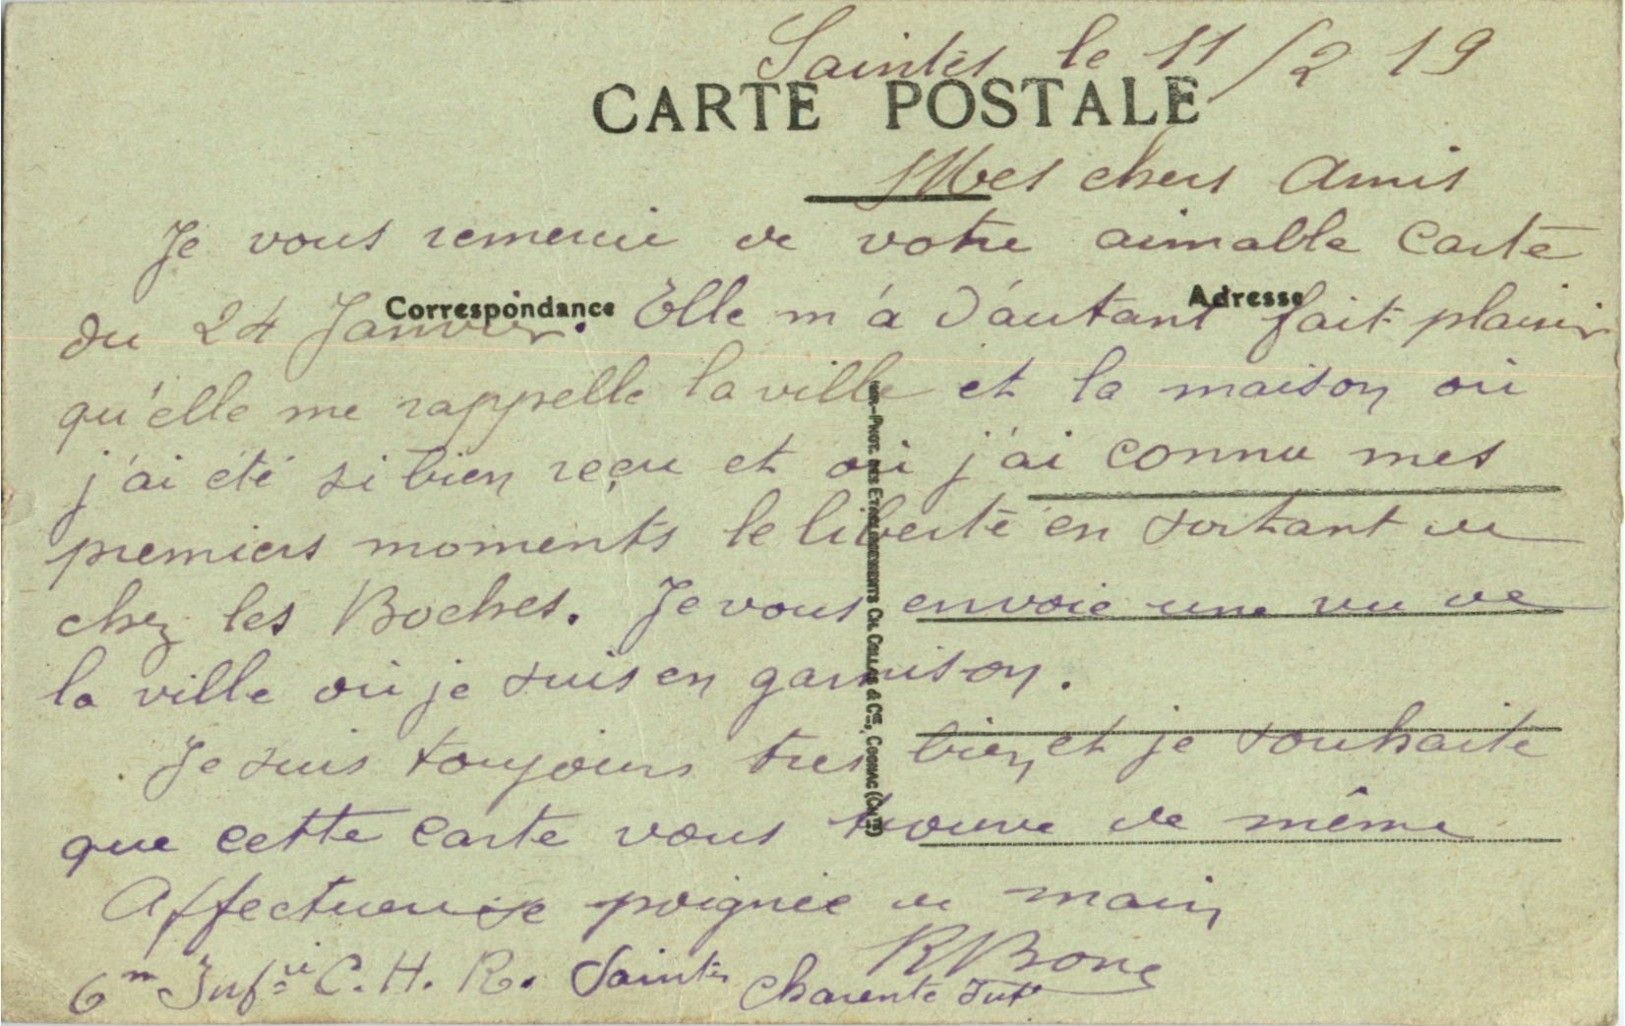 Saintes le 11/2 19
CARTE POSTALE
Mes chers Amis
Je vous remercie de votre aimable Carte
Correspondance
Adresse
du 24 Janvier. Elle m'a d'autant fait plaisir
qu'elle me rappelle la ville et la maison où
j'ai été si bien reçu et où j'ai connu mes
premiers moments de liberté en sortant de
chez les Boches. Je vous envoie une vu de
la ville où je suis en garnison.
Je suis toujours très bien, et je souhaite
que cette carte vous trouve de même
Affectueuse poignée de main
R Bone
6me Infrie C. H. R. Saintes Charente Infre
PHOT. DES ETABLISSEMENTS CH. COLLAS & Cie, COGNAC (Chte)